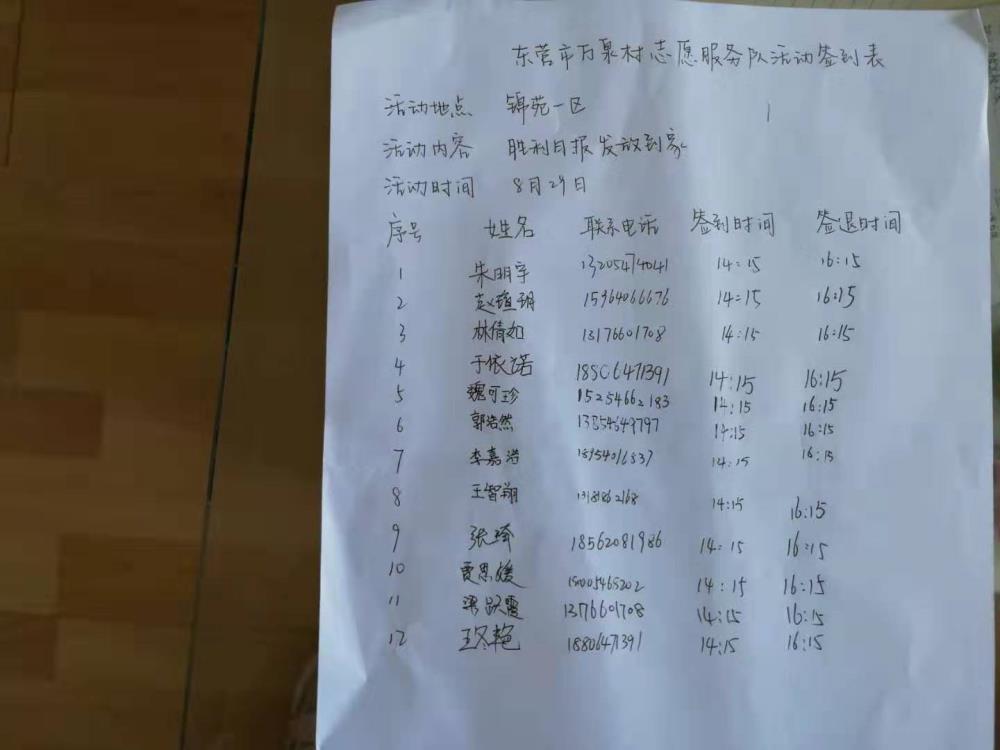 东营市万泉村志愿服务队活动签到表
活动地点 锦苑一区
活动内容 胜利日报发放到家
活动时间 8月29日
序号 姓名 联系电话 签到时间 签退时间
1 朱明宇 13205474041 14:15 16:15
2 赵瑄玥 15964066676 14:15 16:15
3 林倩如 13176601708 14:15 16:15
4 于依诺 18806471391 14:15 16:15
5 魏可珍 15254662183 14:15 16:15
6 郭浩然 14:15 16:15
7 李嘉浩 18954016837 14:15 16:15
8 王智翔 14:15 16:15
9 张琦 18562081986 14:15 16:15
10 贾思媛 14:15 16:15
11 梁跃霞 1376601708 14:15 16:15
12 王冬艳 18806471391 14:15 16:15